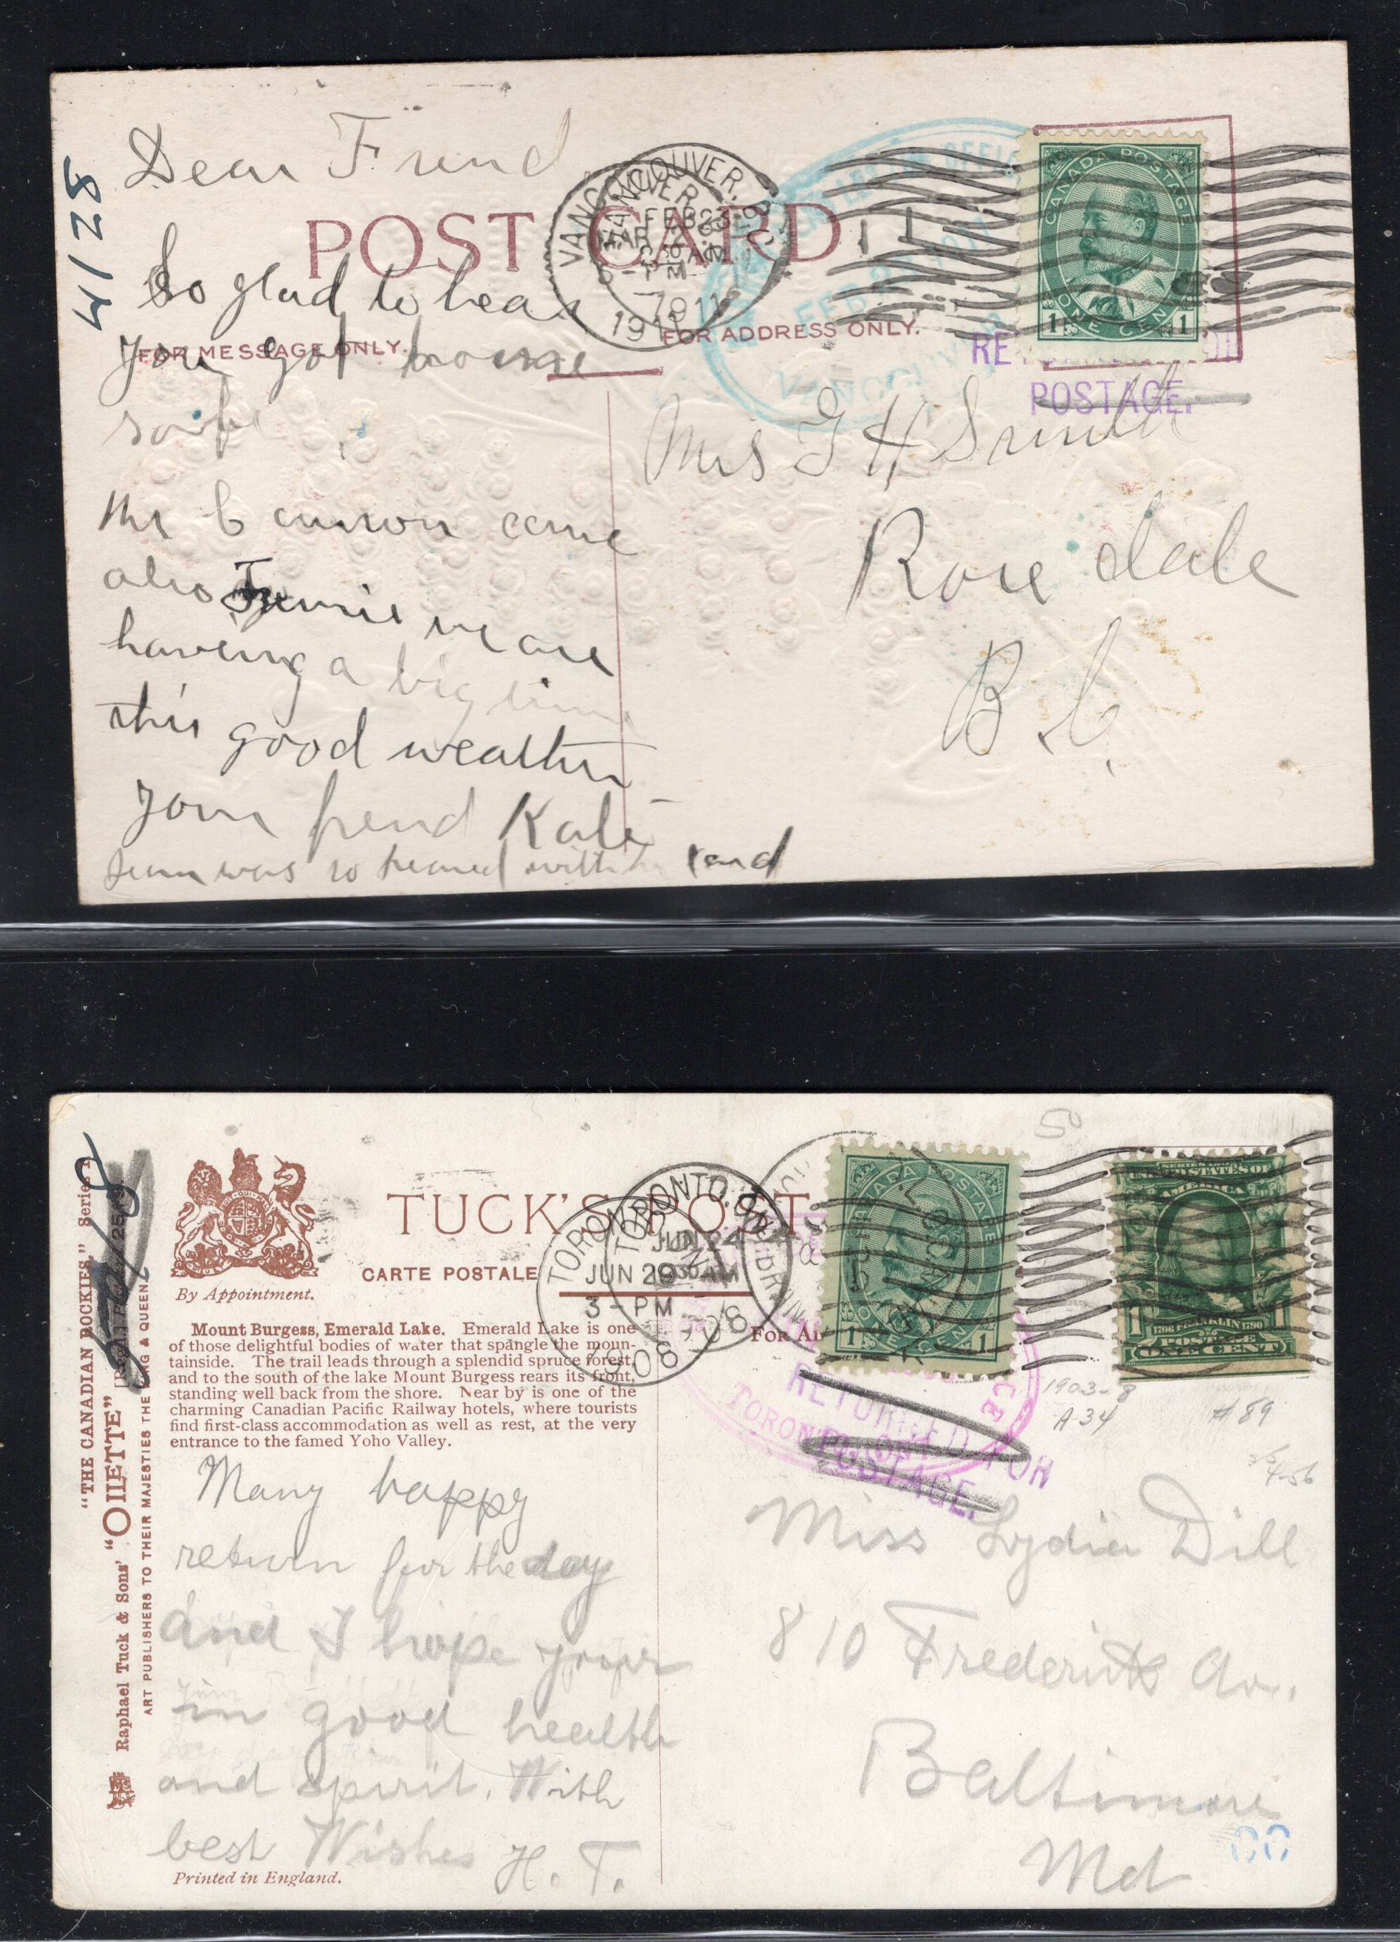 4/28
Dear Friend
POST CARD
VANCOUVER
FEB 23
1911
VANCOUVER
MAR
PM
1911
FEB 23 1911
VANCOUVER
CANADA POSTAGE
1 ONE CENT 1
FOR MESSAGE ONLY.
FOR ADDRESS ONLY.
POSTAGE.
So glad to hear
you got home
safe
came
also Jennie we are
having a big time
this good weather
your friend Kate
was so pleased with card
Mrs G H Smith
Rosedale
B.C.
"THE CANADIAN ROCKIES." Series I
Raphael Tuck & Sons' "OILETTE"
ART PUBLISHERS TO THEIR MAJESTIES THE KING & QUEEN
By Appointment.
TUCK'S POST
CARTE POSTALE
TORONTO, ONT
JUN 24
10 30 AM
1908
TORONTO
JUN 29
3-PM
1908
CANADA POSTAGE
1 ONE CENT 1
UNITED STATES OF
AMERICA
1706 FRANKLIN 1790
POSTAGE
ONE CENT
1903-8
A-34
#89
RETURNED FOR
POSTAGE.
TORONTO, ONT
Mount Burgess, Emerald Lake. Emerald Lake is one
of those delightful bodies of water that spangle the moun-
tainside. The trail leads through a splendid spruce forest,
and to the south of the lake Mount Burgess rears its front,
standing well back from the shore. Near by is one of the
charming Canadian Pacific Railway hotels, where tourists
find first-class accommodation as well as rest, at the very
entrance to the famed Yoho Valley.
Many happy
return for the day
and I hope your
in good health
and spirit. With
best Wishes H. T.
Printed in England.
Miss Lydia Dill
810 Frederick Av.
Baltimore
Md